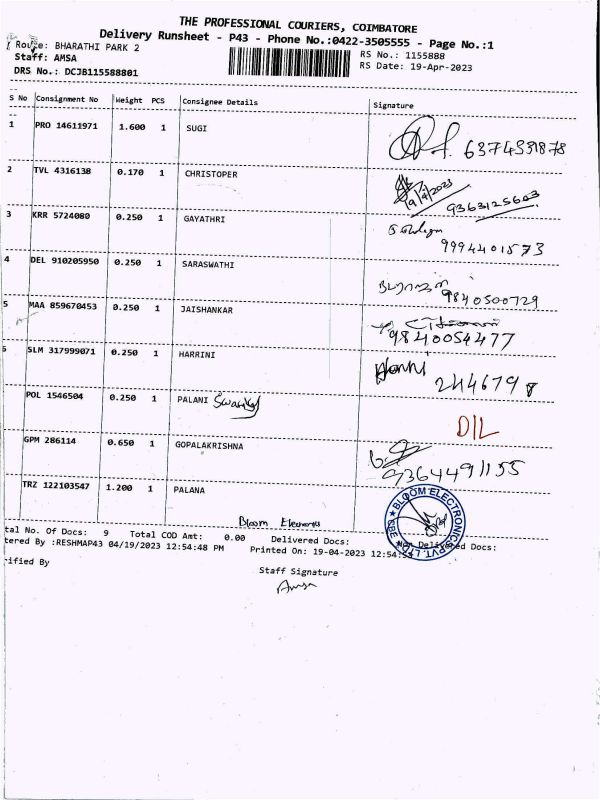 THE PROFESSIONAL COURIERS, COIMBATORE
Delivery Runsheet - P43 - Phone No.:0422-3505555 - Page No.:1
Route: BHARATHI PARK 2
RS No.: 1155888
Staff: AMSA
RS Date: 19-Apr-2023
DRS No.: DCJB115588801
S No Consignment No Weight PCS Consignee Details Signature
1 PRO 14611971 1.600 1 SUGI
6374331878
2 TVL 4316138 0.170 1 CHRISTOPER
19/4/2023
9363125603
3 KRR 5724080 0.250 1 GAYATHRI
9994401573
4 DEL 910205950 0.250 1 SARASWATHI
9840500729
5 MAA 859670453 0.250 1 JAISHANKAR
9840054477
6 SLM 317999071 0.250 1 HARRINI
Harini
2446798
POL 1546504 0.250 1 PALANI Swamy
D/L
GPM 286114 0.650 1 GOPALAKRISHNA
9364491155
TRZ 122103547 1.200 1 PALANA
Bloom Electronics
BLOOM ELECTRONIC PVT. LTD.
tal No. Of Docs: 9 Total COD Amt: 0.00 Delivered Docs: Non Delivered Docs:
tered By :RESHMAP43 04/19/2023 12:54:48 PM Printed On: 19-04-2023 12:54:
rified By
Staff Signature
Amsa